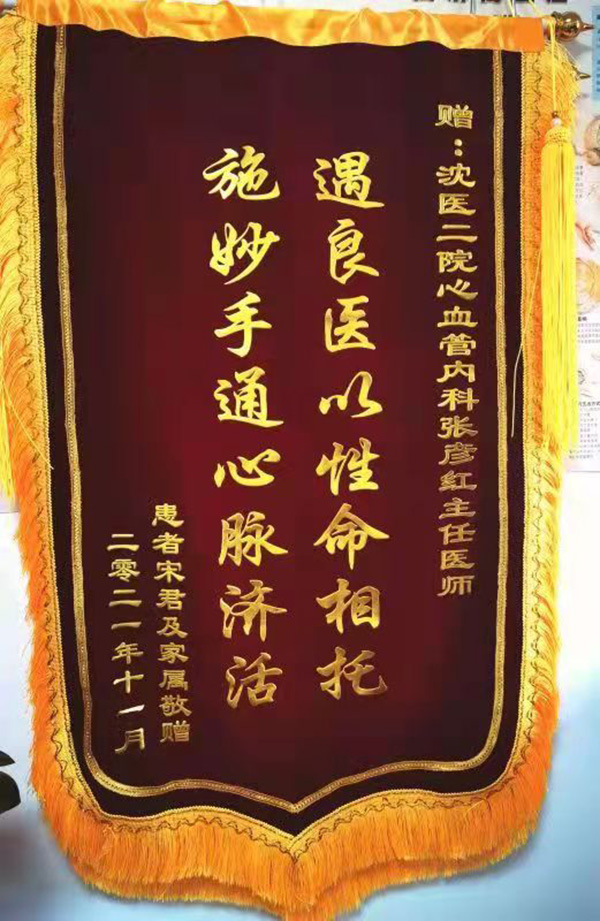 赠：沈医二院心血管内科张彦红主任医师
遇良医以性命相托
施妙手通心脉济活
患者宋君及家属敬赠
二零二一年十一月